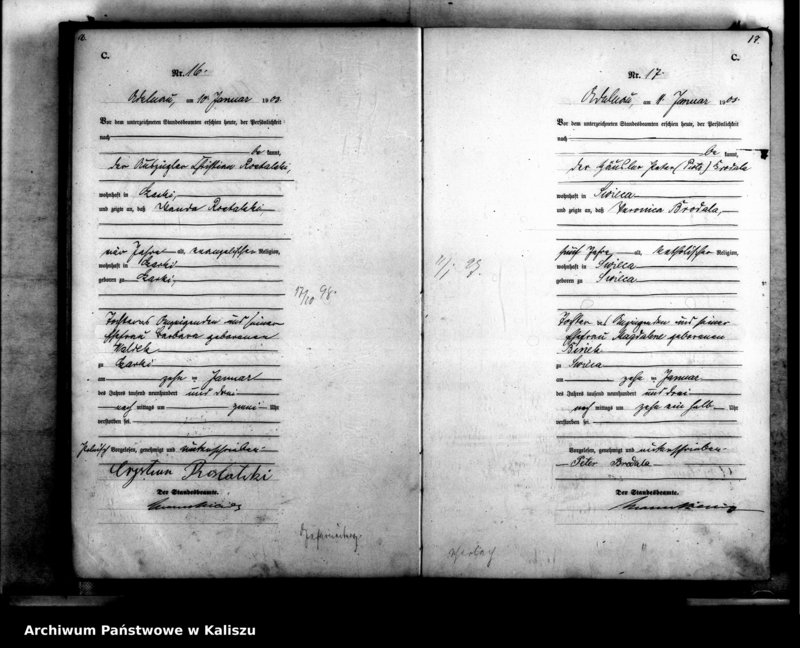 C.
Nr. 16.
Adelnau, am 10. Januar 1903
Vor dem unterzeichneten Standesbeamten erschien heute, der Persönlichkeit
nach
be kannt,
der Auszügler Christian Rostalski,
wohnhaft in
und zeigte an, daß Wanda Rostalski,
vier Jahre alt, evangelischer Religion,
wohnhaft in
geboren zu
17/10 98.
Tochter des Anzeigenden und seiner
Ehefrau Barbara geborenen
zu
am zehn Januar
des Jahres tausend neunhundert und drei
nach mittags um zwei Uhr
verstorben sei.
Vorgelesen, genehmigt und unterschrieben
Crystian Rostalski
Der Standesbeamte.
18.
C.
Nr. 17
Adelnau, am 11. Januar 1903
Vor dem unterzeichneten Standesbeamten erschien heute, der Persönlichkeit
nach
be kannt,
der Häusler Peter (Piotr) Brodala
wohnhaft in Swieca
und zeigte an, daß Veronica Brodala,
fünf Jahre alt, katholischer Religion,
wohnhaft in Swieca
geboren zu Swieca
Tochter des Anzeigenden und seiner
Ehefrau Magdalene geborenen
zu Swieca
am zehn Januar
des Jahres tausend neunhundert und drei
nach mittags um zehn ein halb Uhr
verstorben sei.
Vorgelesen, genehmigt und unterschrieben
Peter Brodala
Der Standesbeamte.
Archiwum Państwowe w Kaliszu